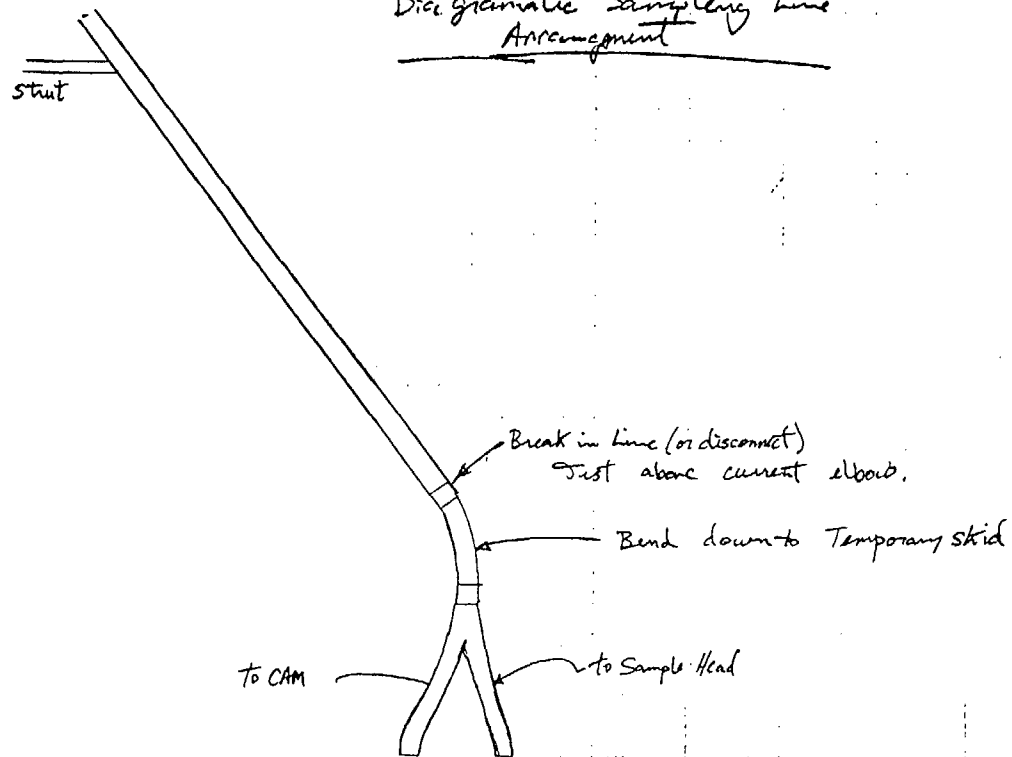 Diagramatic Sampling Line
Arrangment
strut
Break in Line (or disconnect)
Just above current elbow.
Bend down to Temporary skid
to CAM
to Sample Head